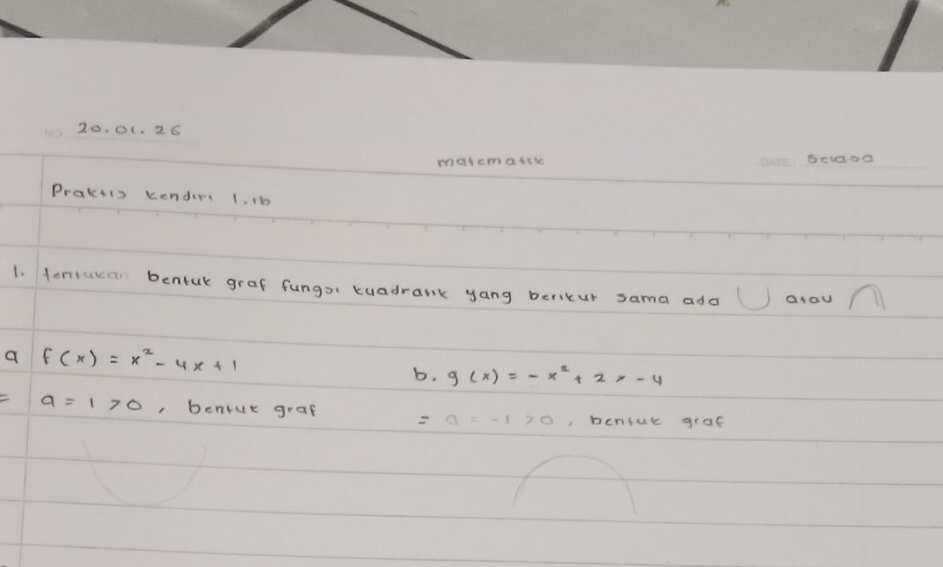 NO. 20.01.26
matematik DATE Selasa
Praktis kendiri 1.1b
1. tentukan bentuk graf fungsi kuadratik yang berikut sama ada ∪ atau ∩
a f(x) = x² - 4x + 1
b. g(x) = - x² + 2x - 4
= a = 1 > 0, bentuk graf
= a = -1 > 0, bentuk graf